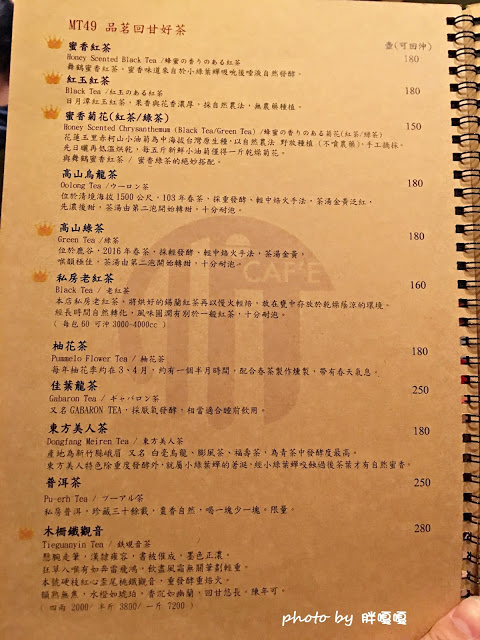 MT49 品茗回甘好茶
壺(可回沖)
蜜香紅茶 180
Honey Scented Black Tea /蜂蜜の香りのある紅茶
舞鶴蜜香紅茶、蜜香味道來自於小綠葉蟬吸吮後唾液自然發酵。
紅玉紅茶 180
Black Tea /紅玉のある紅茶
日月潭紅玉紅茶，果香與花香濃厚，採自然農法，無農藥種植。
蜜香菊花(紅茶/綠茶) 150
Honey Scented Chrysanthemum (Black Tea/Green Tea) /蜂蜜の香りのある菊花(紅茶/綠茶)
花蓮玉里赤柯山小油菊為中海拔台灣原生種，以自然農法 野放種植 (不噴農藥)，手工摘採。
先日曬再低溫烘乾，每五斤新鮮小油菊僅得一斤乾燥菊花。
與舞鶴蜜香紅茶 / 蜜香綠茶的絕妙搭配。
高山烏龍茶 180
Oolong Tea /ウーロン茶
位於清境海拔1500公尺，103年春茶，採重發酵、輕中焙火手法，茶湯金黃泛紅，
先濃後甜，茶湯由第二泡開始轉甜，十分耐泡。
高山綠茶 180
Green Tea /綠茶
位於鹿谷，2016年春茶，採輕發酵、輕中焙火手法，茶湯金黃，
喉韻極佳，茶湯由第二泡開始轉甜，十分耐泡。
CAFE
私房老紅茶 160
Black Tea / 老紅茶
本店私房老紅茶，將烘好的錫蘭紅茶再以慢火輕焙，放在甕中存放於乾燥蔭涼的環境。
經長時間自然轉化，風味圓潤有別於一般紅茶，十分耐泡。
( 每包 60 可沖 3000-4000cc )
柚花茶 180
Pummelo Flower Tea / 柚花茶
每年柚花季約在3、4月，約有一個半月時間，配合春茶製作燻製，帶有春天氣息。
佳葉龍茶 250
Gabaron Tea / ギャバロン茶
又名 GABARON TEA，採厭氧發酵，相當適合睡前飲用。
東方美人茶 180
Dongfang Meiren Tea / 東方美人茶
產地為新竹縣峨眉 又名 白毫烏龍、膨風茶、福壽茶，為青茶中發酵度最高。
東方美人特色除重度發酵外，就屬小綠葉蟬的著涎，經小綠葉蟬咬蝕過後茶葉才有自然蜜香。
普洱茶 250
Pu-erh Tea / プーアル茶
私房普洱，珍藏三十餘載，棗香自然，喝一塊少一塊，限量。
木柵鐵觀音 280
Tieguanyin Tea / 鉄観音茶
懸腕走筆，漢隸雍容，書被催成，墨色正濃。
狂草八喉有如奔雷飛鴻，飲盡風霜無關筆劃輕重。
本號硬枝紅心歪尾桃鐵觀音，重發酵重焙火。
韻熟無焦，水橙如琥珀，香沉如幽蘭，回甘悠長，陳年可。
( 四兩 2000/ 半斤 3800/ 一斤 7200 )
photo by 胖嘎嘎